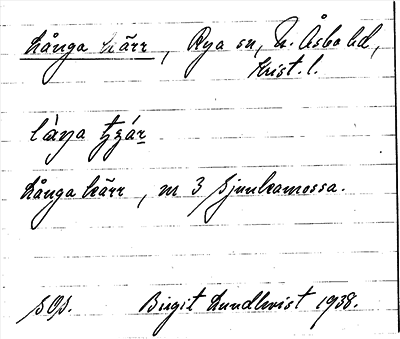 Långa kärr, Rya sn, N. Åsbo hd,
Krist. l.
Långa kärr, m 3 Sjunkamossa.
Birgit Lundkvist 1938.